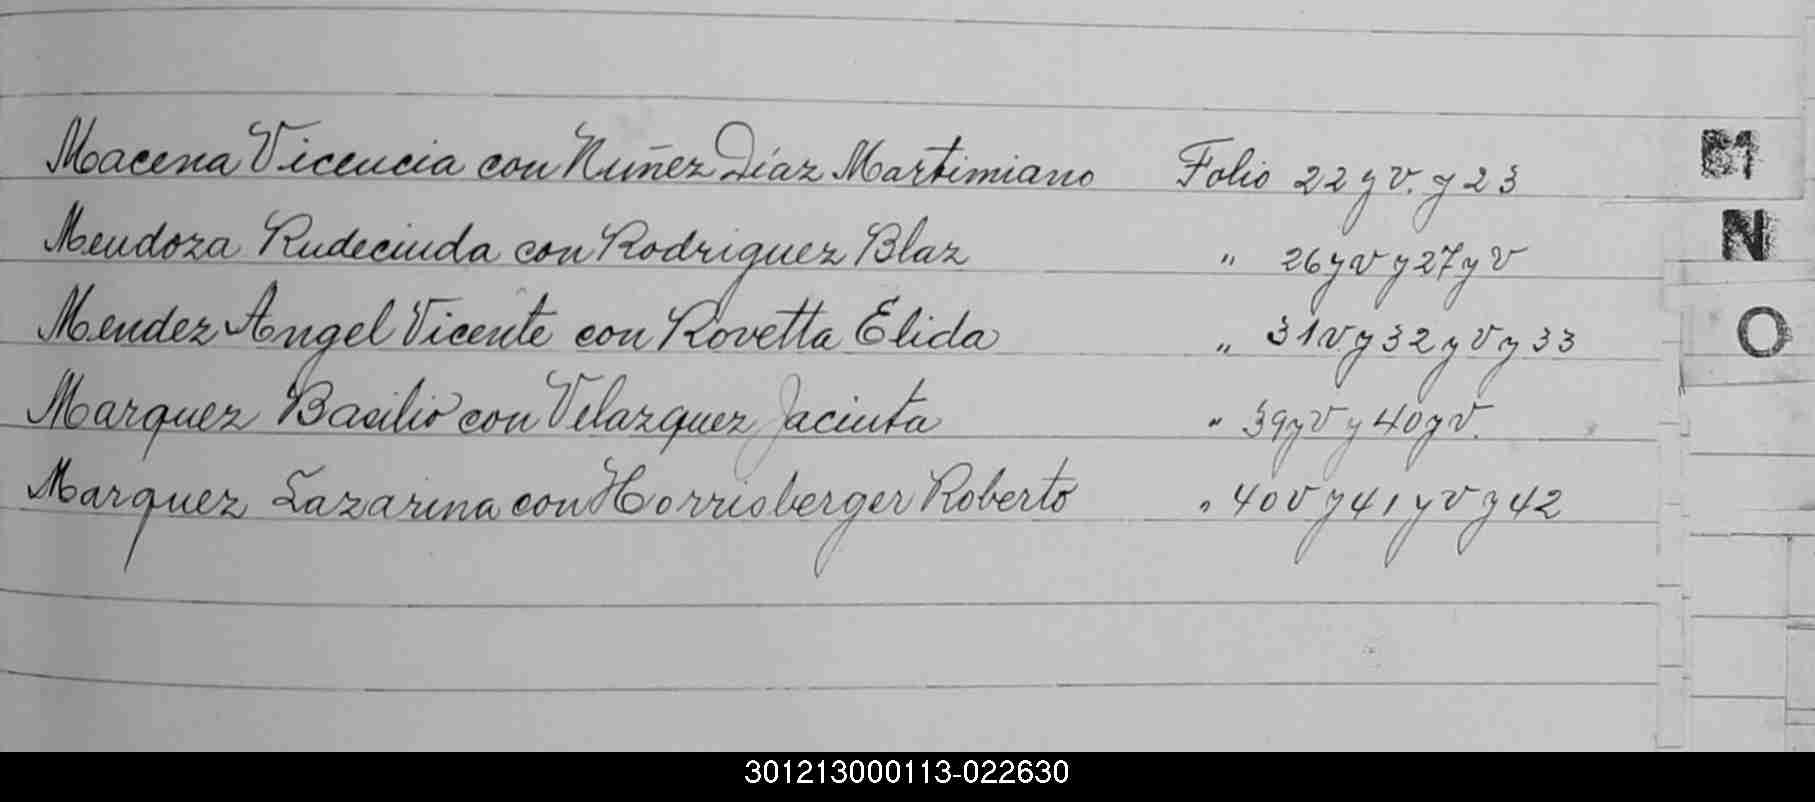 Macena Vicencia con Nuñez Díaz Martimiano Folio 22 y v. y 23
Mendoza Rudecinda con Rodriguez Blaz " 26 y v y 27 y v
Mendez Angel Vicente con Rovetta Elida " 31 v. y 32 y v y 33
Marquez Basilio con Velazquez Jacinta " 39 y v y 40 y v.
Marquez Lazarina con Horrisberger Roberto " 40 v y 41 y v y 42
M
N
O
301213000113-022630